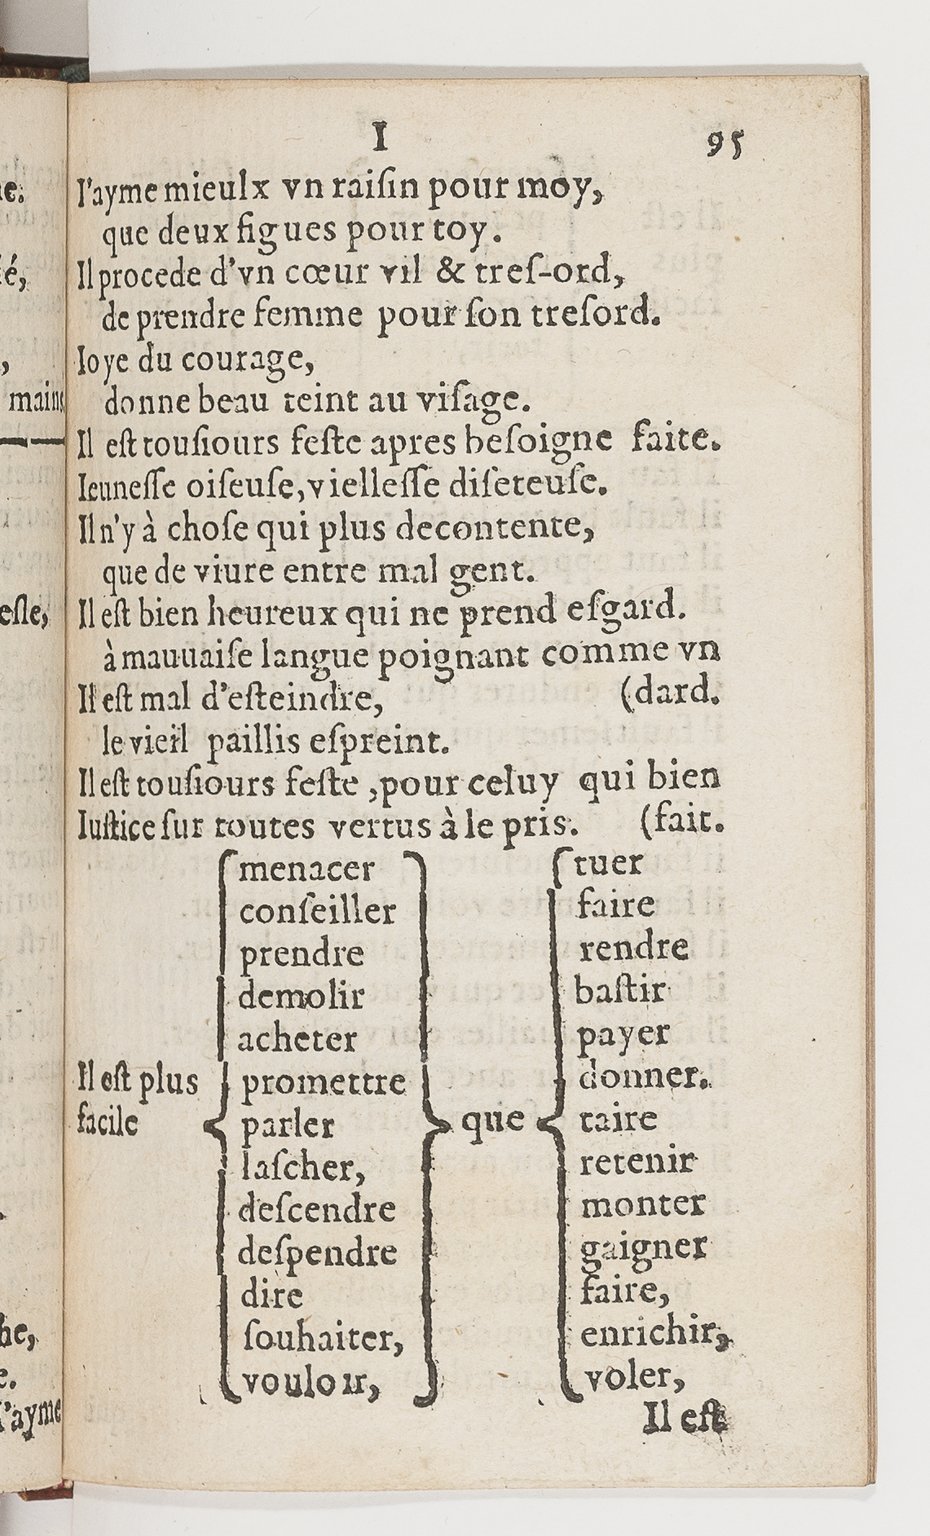 I 95
I'ayme mieulx vn raiſin pour moy,
que deux figues pour toy.
Il procede d'vn cœur vil & treſ-ord,
de prendre femme pour ſon treſord.
Ioye du courage,
donne beau teint au viſage.
Il eſt touſiours feſte apres beſoigne faite.
Ieuneſſe oiſeuſe, vielleſſe diſeteuſe.
Il n'y à choſe qui plus decontente,
que de viure entre mal gent.
Il eſt bien heureux qui ne prend eſgard.
à mauuaiſe langue poignant comme vn
Il eſt mal d'eſteindre, (dard.
le vieil paillis eſpreint.
Il eſt touſiours feſte , pour celuy qui bien
Iuſtice ſur toutes vertus à le pris. (fait.
menacer tuer
conſeiller faire
prendre rendre
demolir baſtir
acheter payer
Il eſt plus promettre donner.
facile parler que taire
laſcher, retenir
deſcendre monter
deſpendre gaigner
dire faire,
ſouhaiter, enrichir,
vouloir, voler,
Il eſt
e.
é,
,
main
eſle,
he,
e.
I'ayme